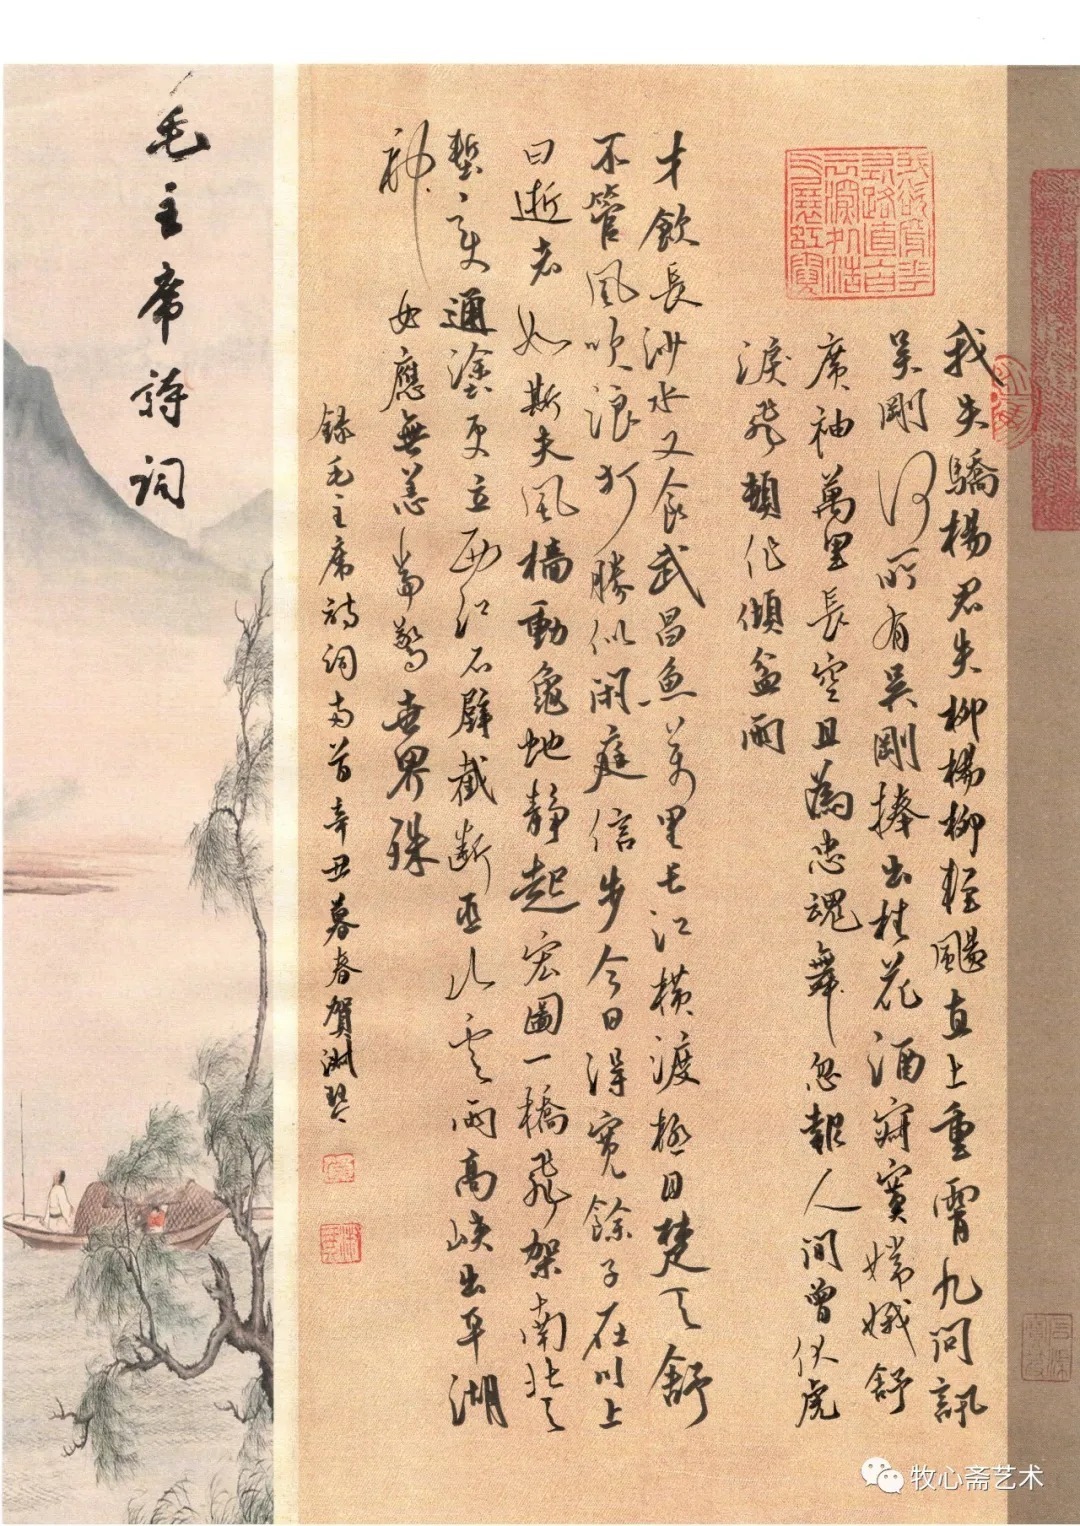 我失驕楊君失柳楊柳輕颺直上重霄九問訊
吳剛何所有吳剛捧出桂花酒寂寞嫦娥舒
廣袖萬里長空且為忠魂舞忽報人間曾伏虎
淚飛頓作傾盆雨
才飲長沙水又食武昌魚萬里長江橫渡極目楚天舒
不管風吹浪打勝似閑庭信步今日得寬餘子在川上
曰逝者如斯夫風檣動龜蛇靜起宏圖一橋飛架南北天
塹變通塗更立西江石壁截斷巫山雲雨高峽出平湖
神女應無恙當驚世界殊
錄毛主席詩詞兩首辛丑暮春賀淑琴
毛主席詩詞
牧心斋艺术